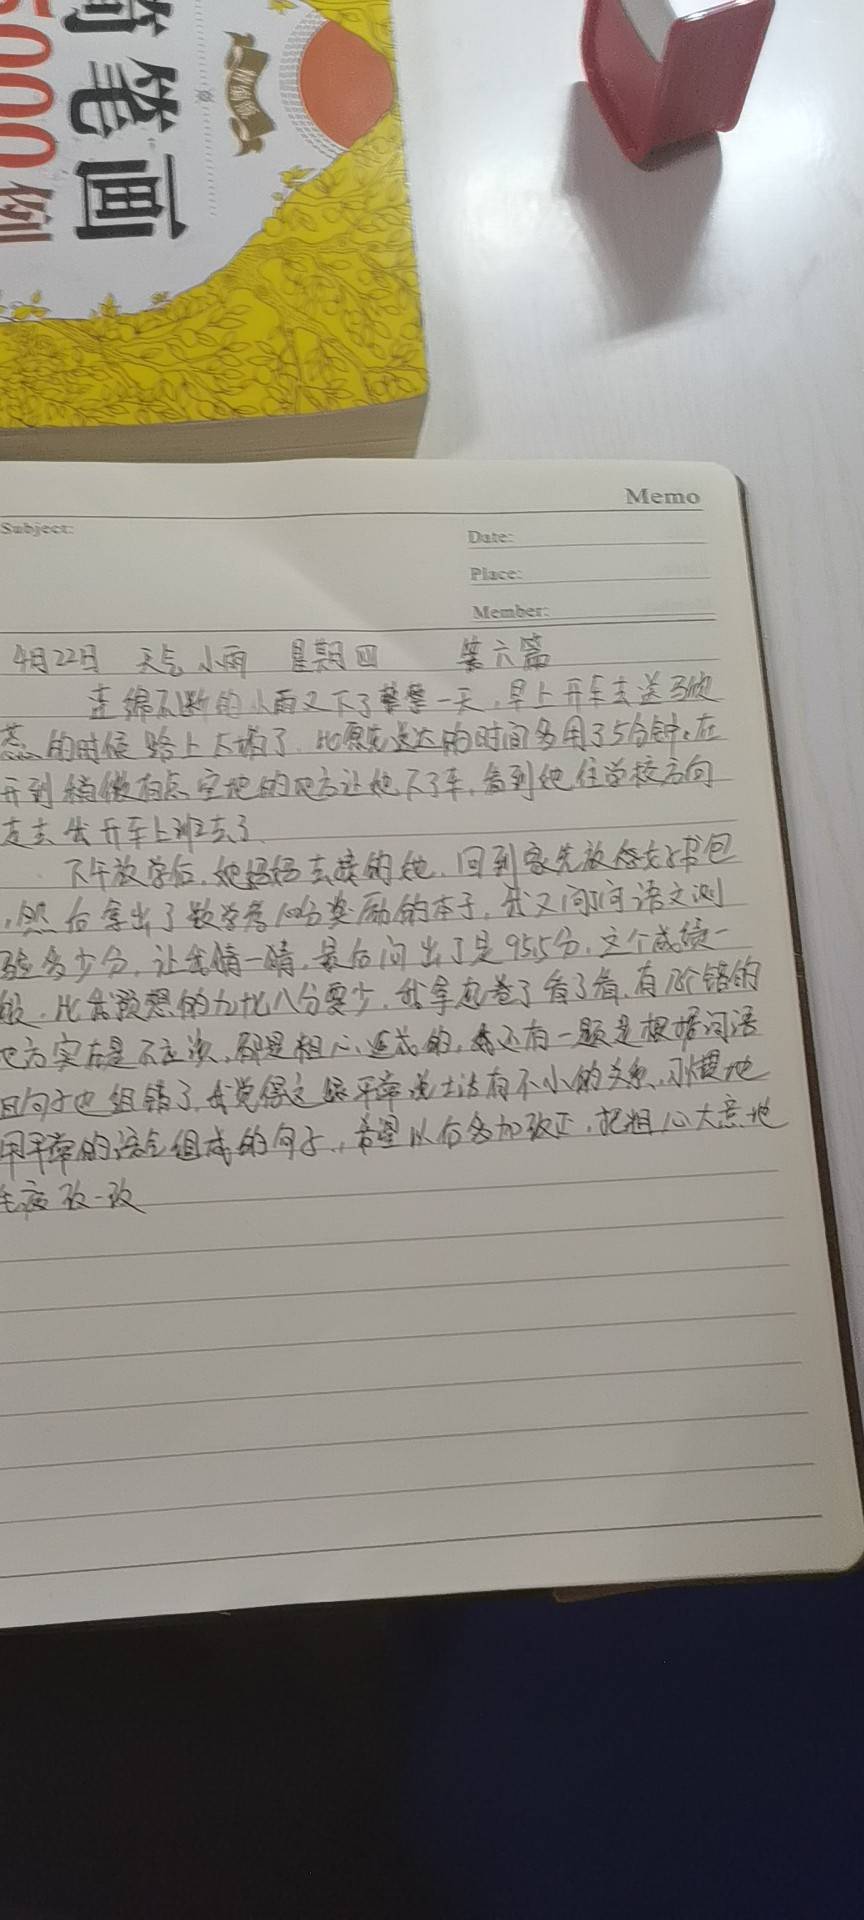 简笔画
5000例
Memo
Subject:
Date:
Place:
Member:
4月22日 天气 小雨 星期四 第六篇
连绵不断的小雨又下了整整一天,早上开车去送
的时候路上太堵了,比原先送达的时间多用了5分钟。在
开到稍微有点空地的地方让她下了车,看到她往学校方向
走去我开车上班去了
下午放学后,她妈妈去接的她,回到家先放好书包
,然后拿出了数学考100分奖励的本子,我又问问语文测
验多少分,让我猜一猜,最后问出了是95.5分,这个成绩一
般,比我预想的九十七八分要少,我拿起卷了看了看,有几个错的
地方实在是不应该,都是粗心造成的,还有一题是根据词语
组句子也组错了,我觉得这跟平常说土话有不小的关系,习惯地
用平常的语气组成的句子,希望以后多加改正,把粗心大意地
毛病改一改